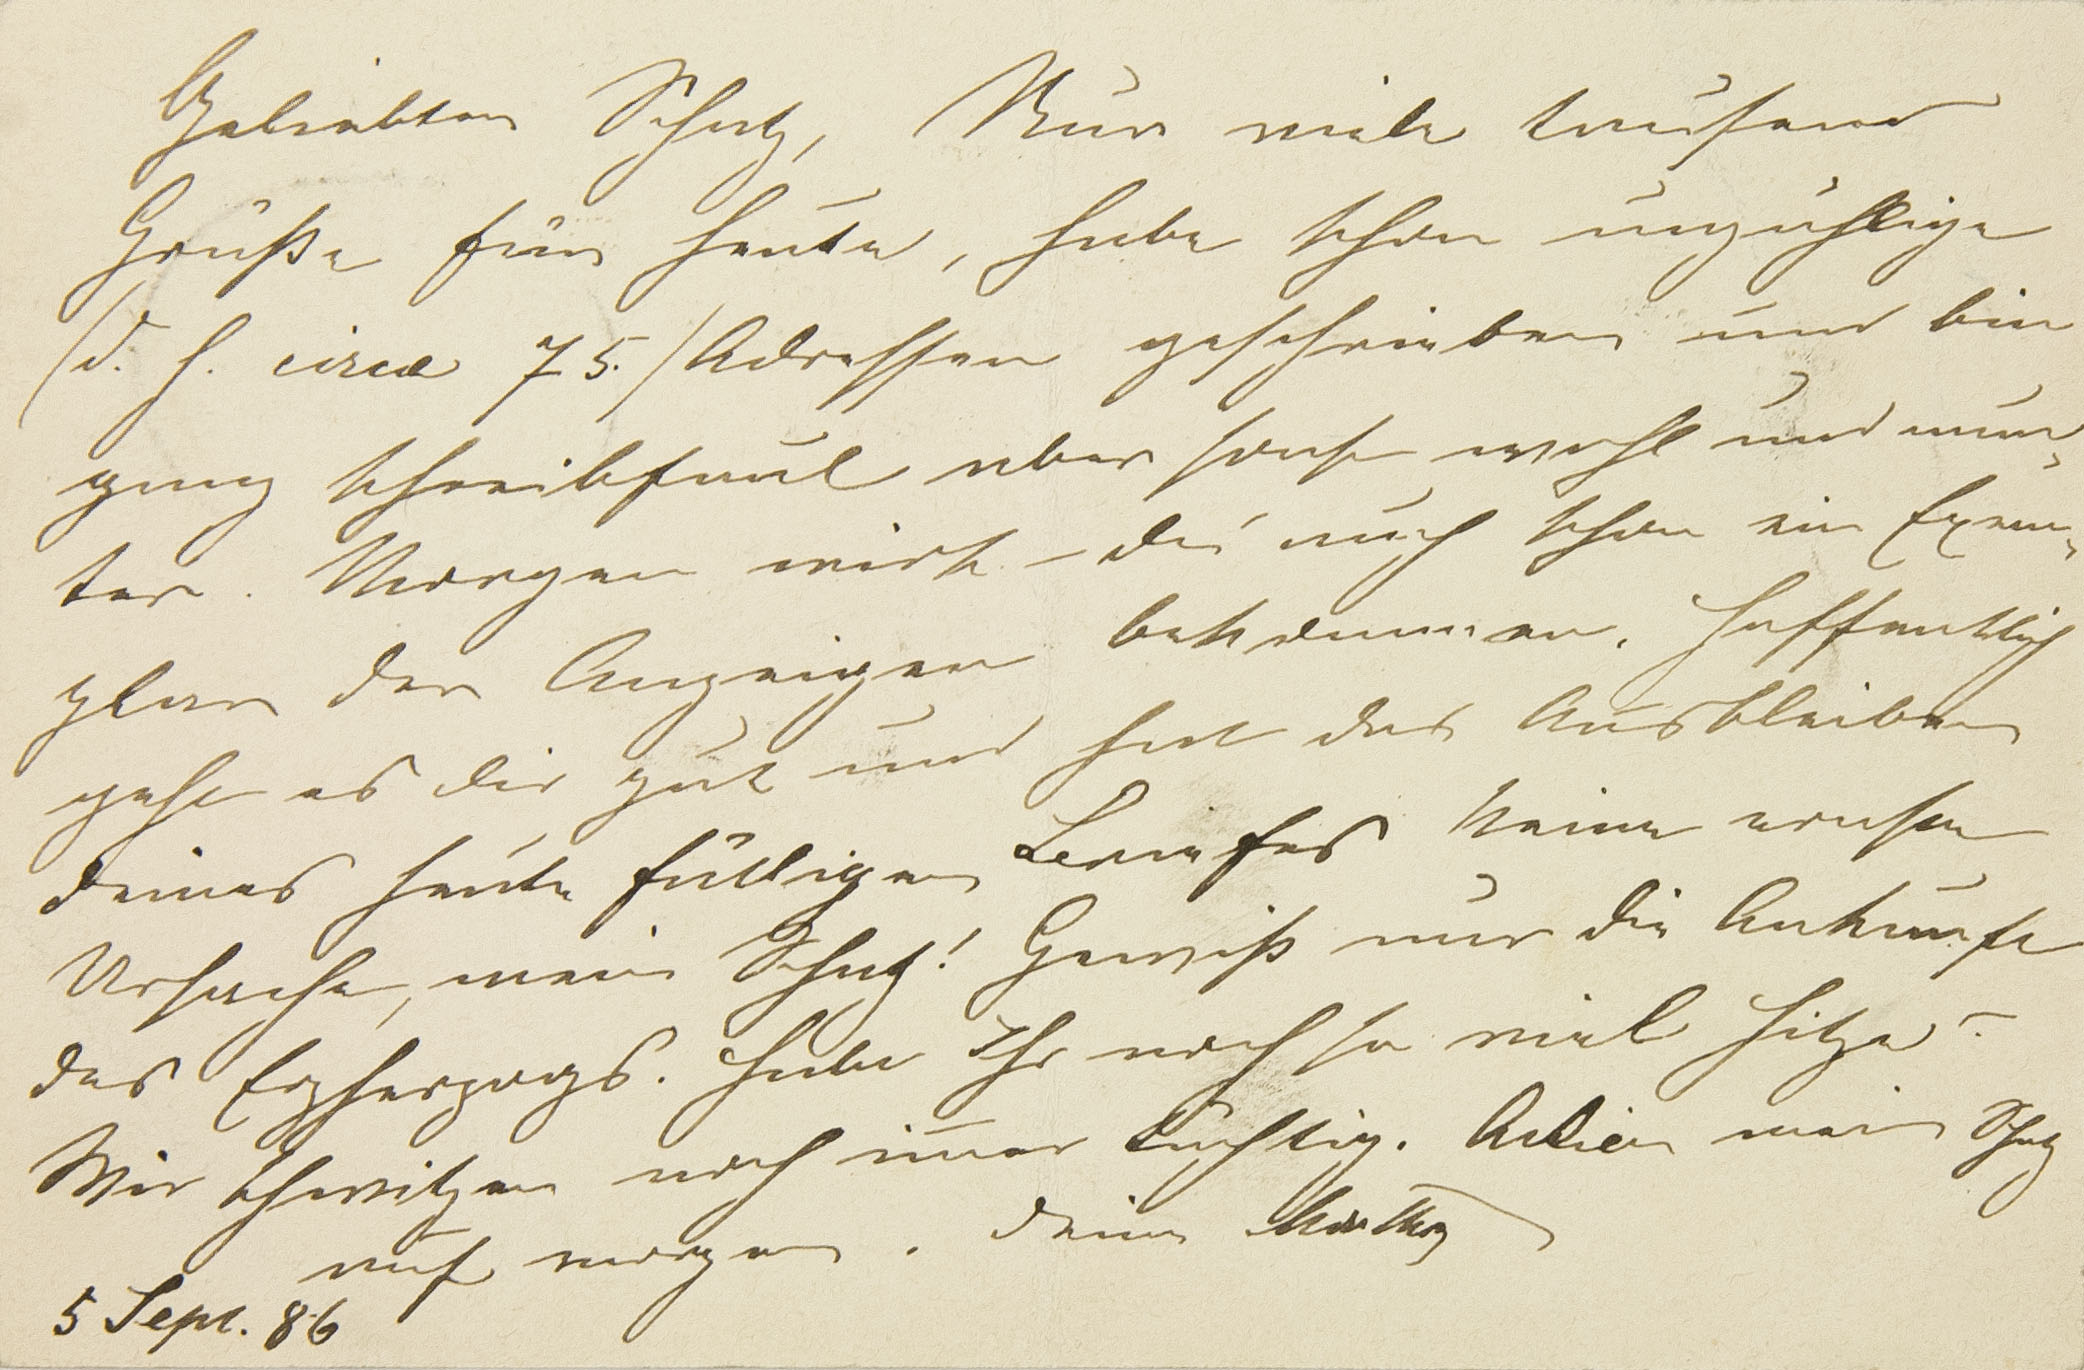 Geliebter Schatz, Nur viele tausend
Grüße für heute, habe schon unzählige
(d. h. circa 75.) Adressen geschrieben und bin
ganz schreibfaul aber sonst wohl und mun-
ter. Morgen wirst du auch schon ein Exem-
plar der Anzeigen bekommen. Hoffentlich
geht es dir gut und hat das Ausbleiben
deines heute fälligen Briefes keine ernste
Ursache, mein Schatz! Gewiß nur die Ankunft
des Erzherzogs. Habt Ihr noch so viel Hitze?
Wir schwitzen noch im̅er tüchtig. Adieu mein Schatz
auf morgen. Deine Martha
5 Sept. 86